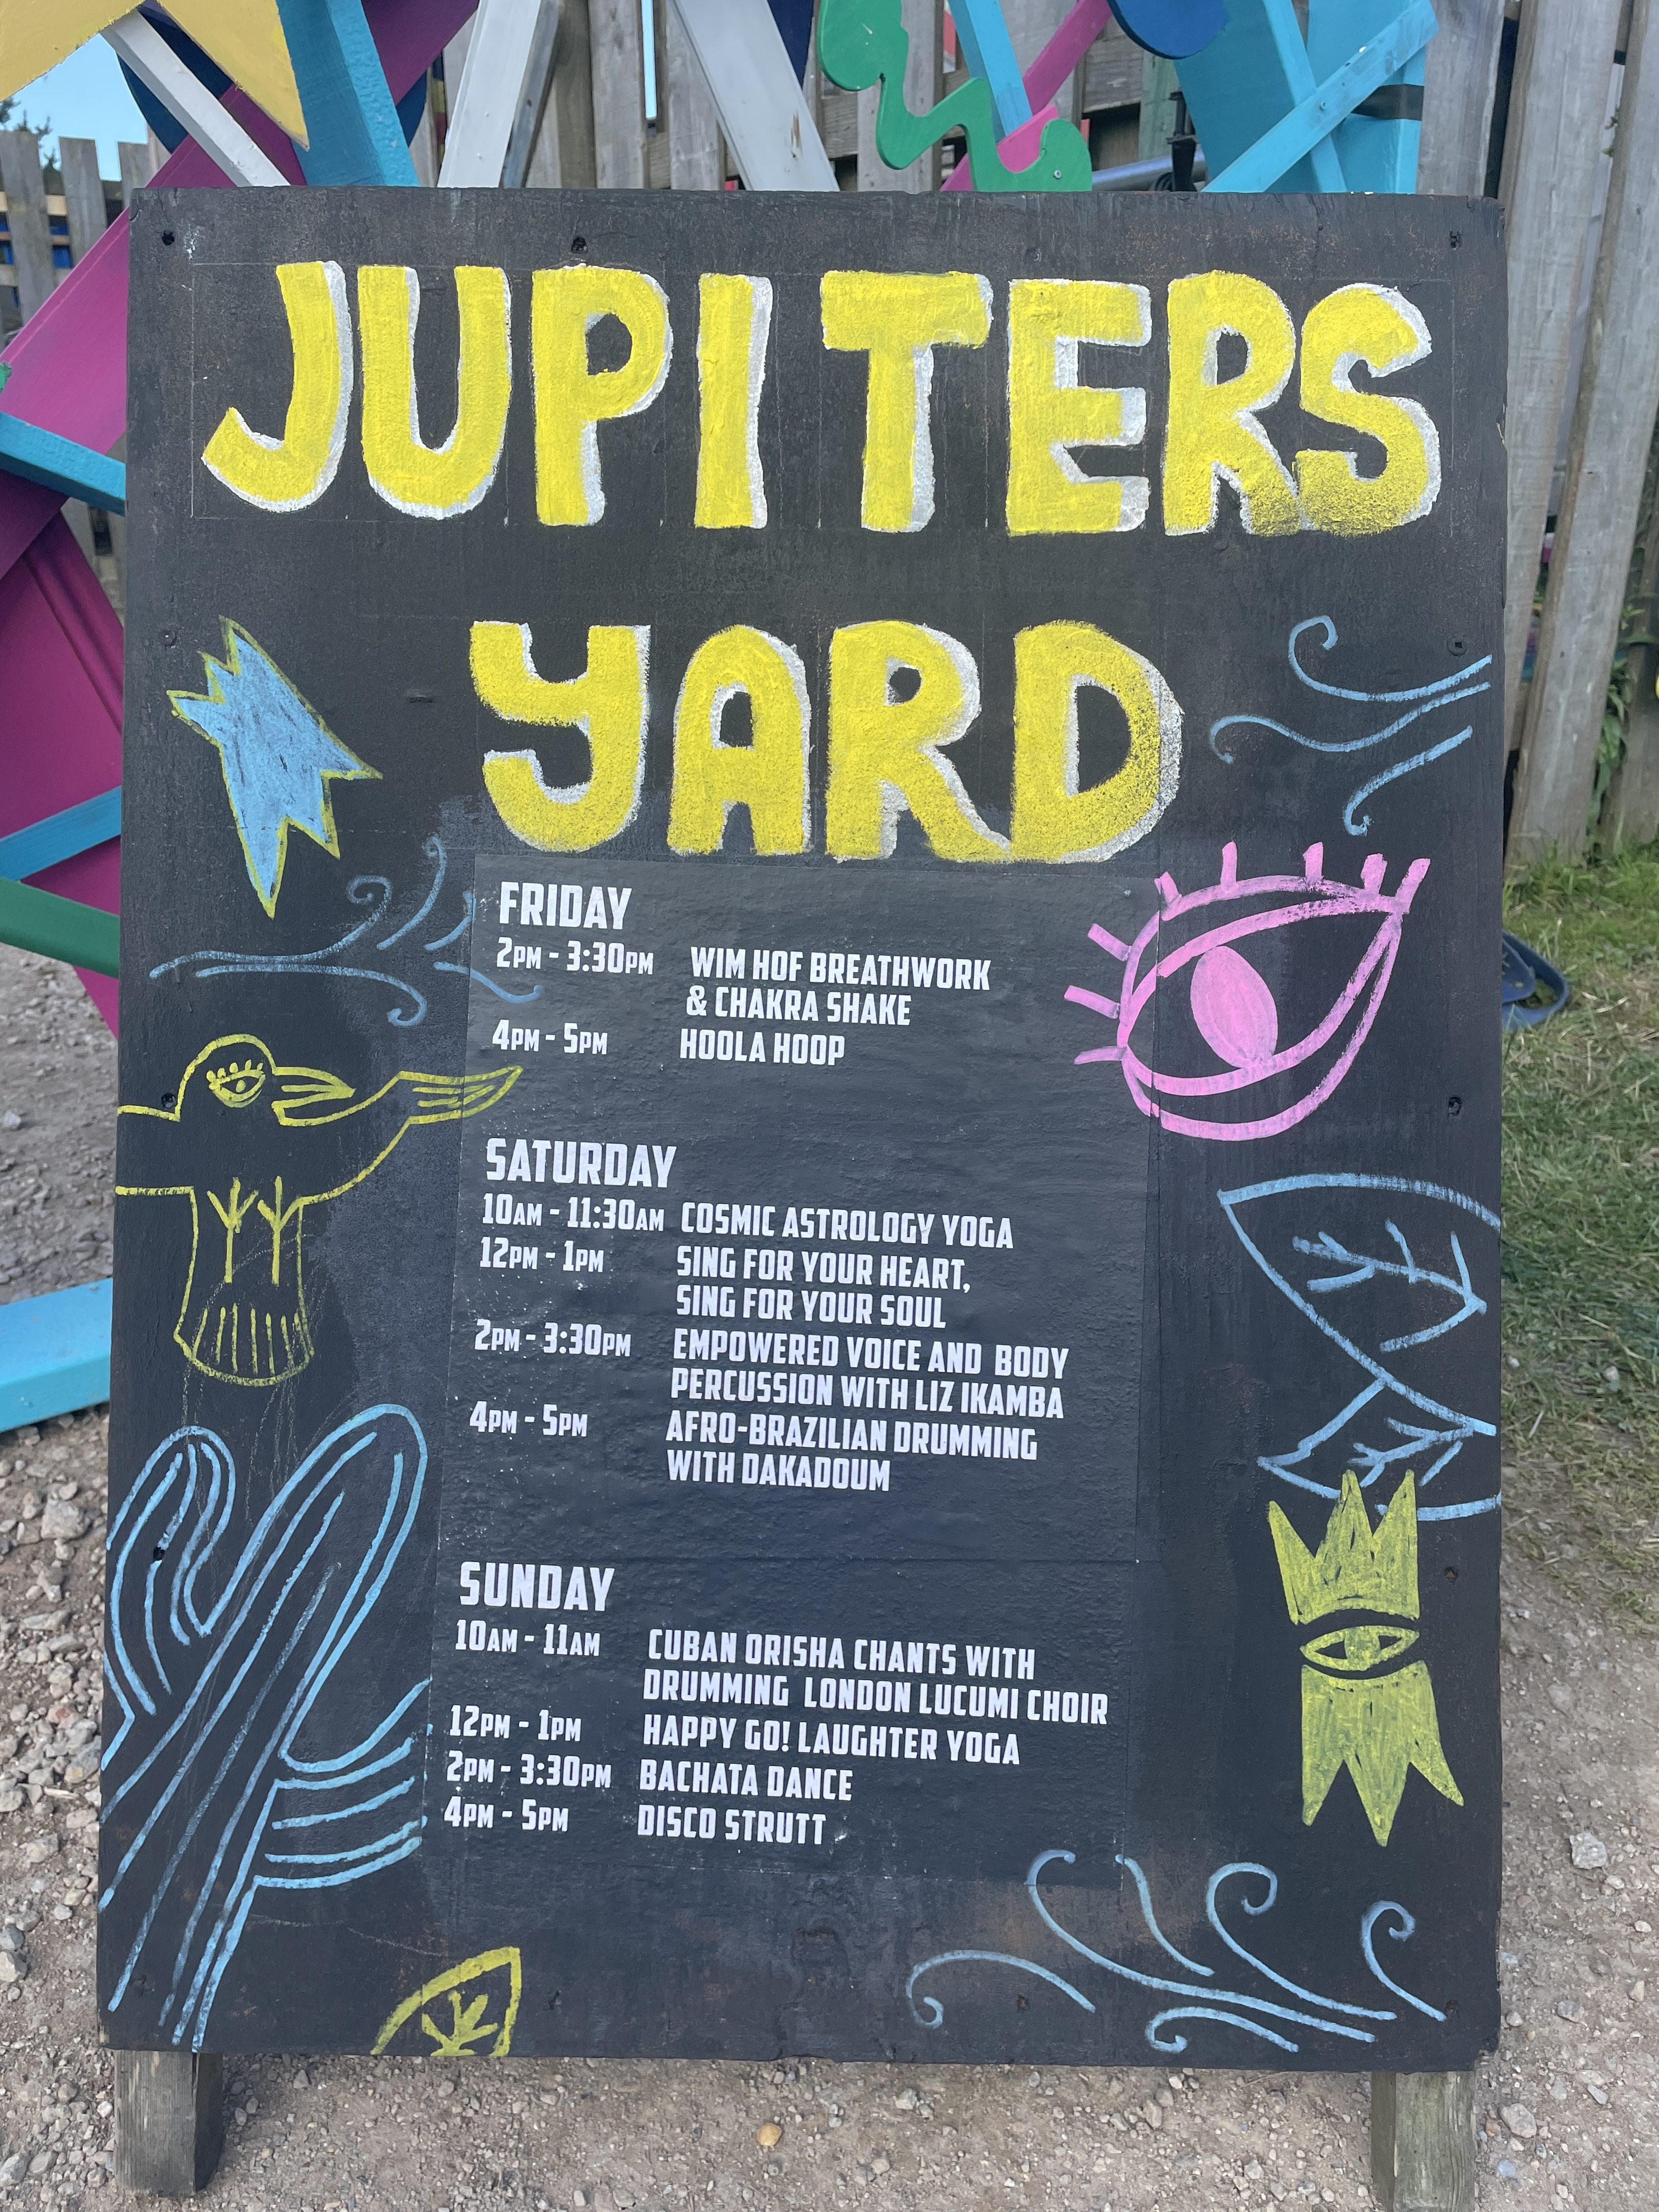 JUPITERS
YARD
FRIDAY
2PM - 3:30PM WIM HOF BREATHWORK
& CHAKRA SHAKE
4PM - 5PM HOOLA HOOP
SATURDAY
10AM - 11:30AM COSMIC ASTROLOGY YOGA
12PM - 1PM SING FOR YOUR HEART,
SING FOR YOUR SOUL
2PM - 3:30PM EMPOWERED VOICE AND BODY
PERCUSSION WITH LIZ IKAMBA
4PM - 5PM AFRO-BRAZILIAN DRUMMING
WITH DAKADOUM
SUNDAY
10AM - 11AM CUBAN ORISHA CHANTS WITH
DRUMMING LONDON LUCUMI CHOIR
12PM - 1PM HAPPY GO! LAUGHTER YOGA
2PM - 3:30PM BACHATA DANCE
4PM - 5PM DISCO STRUTT